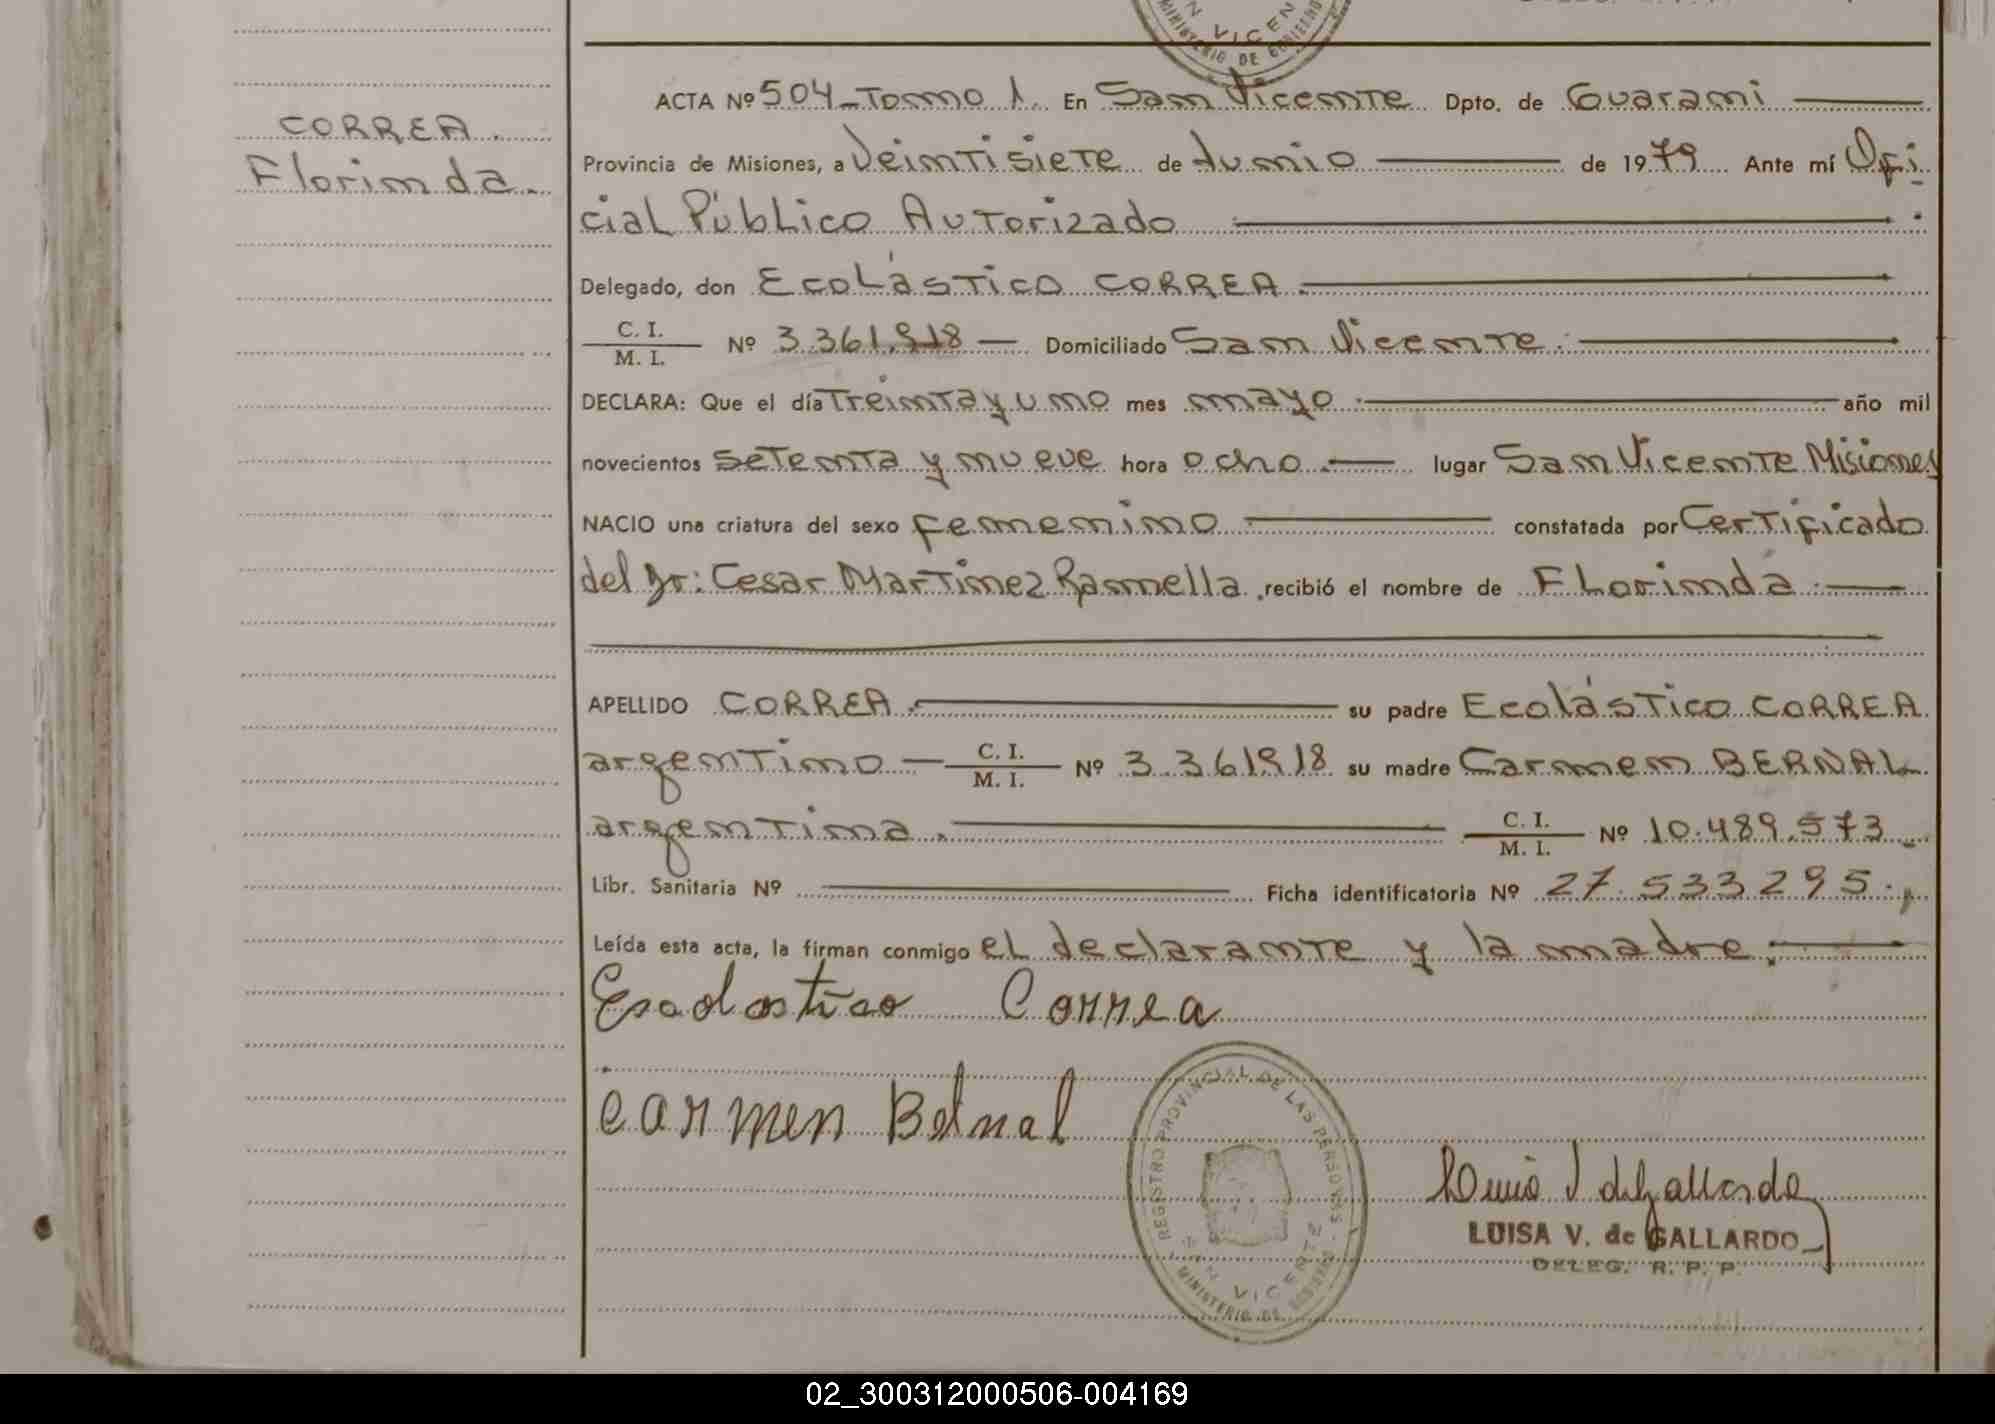 CORREA.
Florinda.
ACTA Nº 504 - Tomo 1. En San Vicente Dpto. de Guarani
Provincia de Misiones, a Veintisiete de Junio de 1979 Ante mí Ofi
cial Público Autorizado
Delegado, don Ecolástico CORREA.
C. I.
M. I.
Nº 3.361.918 — Domiciliado San Vicente.
DECLARA: Que el día Treinta y uno mes mayo año mil
novecientos setenta y nueve hora ocho. lugar San Vicente Misiones
NACIO una criatura del sexo femenino constatada por Certificado
del Dr: Cesar Martinez Ramella, recibió el nombre de Florinda
APELLIDO CORREA. su padre Ecolástico CORREA
argentino — C. I. / M. I. Nº 3.361918 su madre Carmen BERNAL
argentina. C. I. / M. I. Nº 10.489.573
Libr. Sanitaria Nº Ficha identificatoria Nº 27.533295.
Leída esta acta, la firman conmigo el declarante y la madre.
Correa
Carmen Bernal
REGISTRO PROVINCIAL DE LAS PERSONAS
SAN VICENTE
MINISTERIO DE GOBIERNO
LUISA V. de GALLARDO
DELEG. R. P. P.
02_300312000506-004169